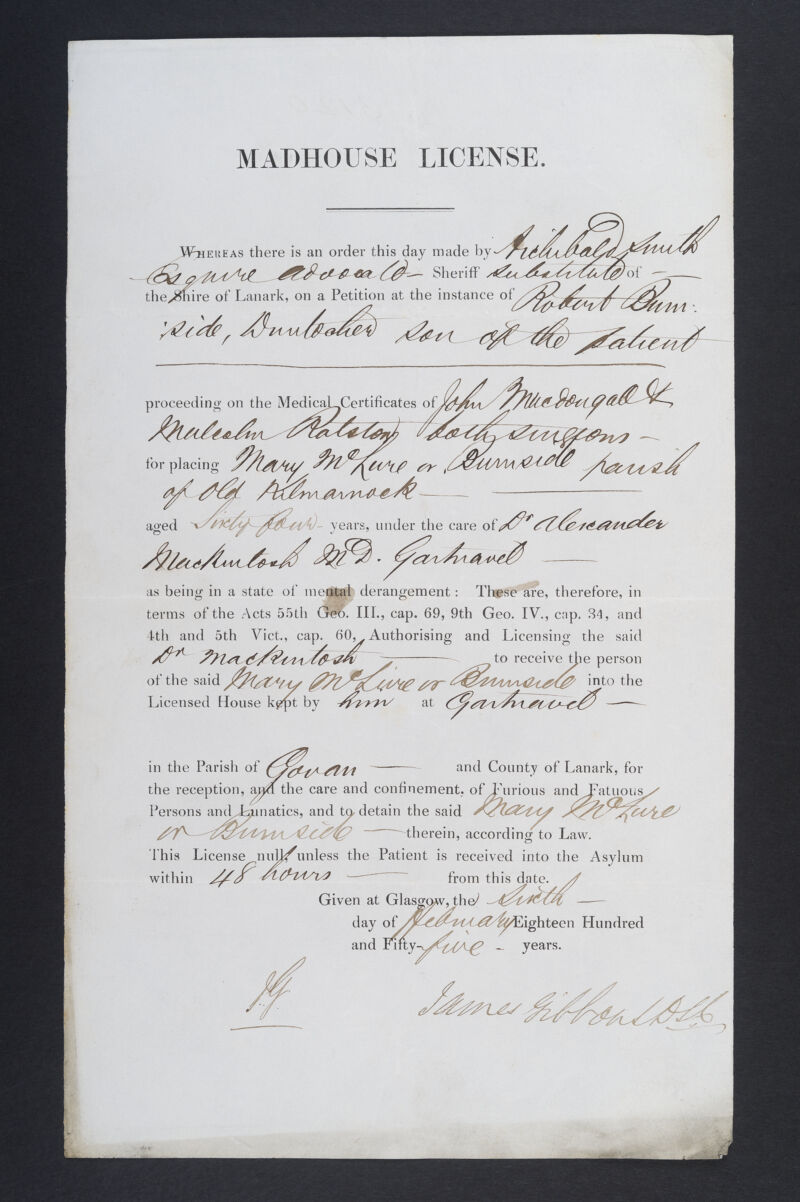 MADHOUSE LICENSE.
WHEREAS there is an order this day made by Archibald Smith
Esquire advocate Sheriff substitute of
the Shire of Lanark, on a Petition at the instance of Robert Burn-
side, Duntocher son of the patient
proceeding on the Medical Certificates of John Macdougall &
Malcolm Ralston both surgeons
for placing Mary McLure or Burnside parish
of Old Kilmarnock
aged Sixty four years, under the care of Dr Alexander
Mackintosh M.D. Gartnavel
as being in a state of mental derangement: These are, therefore, in
terms of the Acts 55th Geo. III., cap. 69, 9th Geo. IV., cap. 34, and
4th and 5th Vict., cap. 60, Authorising and Licensing the said
Dr Mackintosh to receive the person
of the said Mary McLure or Burnside into the
Licensed House kept by him at Gartnavel
in the Parish of Govan and County of Lanark, for
the reception, and the care and confinement, of Furious and Fatuous
Persons and Lunatics, and to detain the said Mary McLure
or Burnside therein, according to Law.
This License null, unless the Patient is received into the Asylum
within 48 hours from this date.
Given at Glasgow, the sixth
day of February Eighteen Hundred
and Fifty-five years.
J.G.
James Gibbons